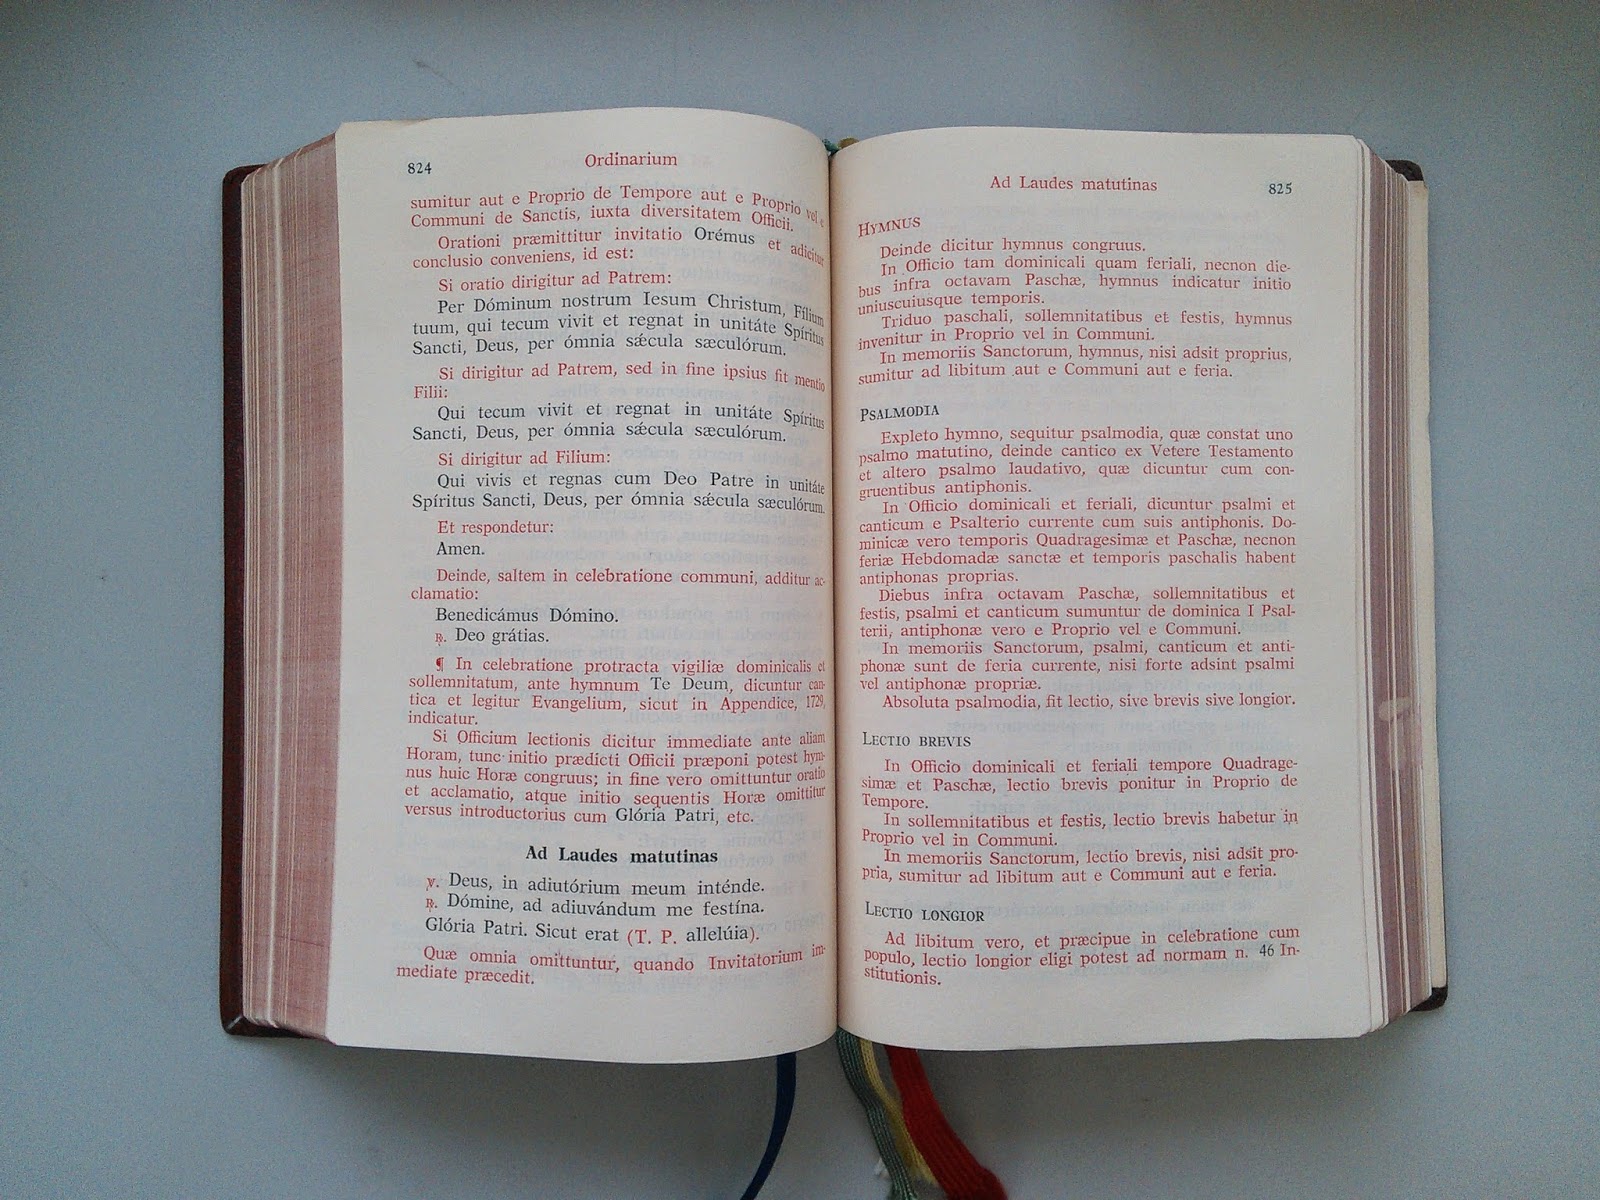 824
Ordinarium
sumitur aut e Proprio de Tempore aut e Proprio vel e
Communi de Sanctis, iuxta diversitatem Officii.
Orationi præmittitur invitatio Orémus et adicitur
conclusio conveniens, id est:
Si oratio dirigitur ad Patrem:
Per Dóminum nostrum Iesum Christum, Fílium
tuum, qui tecum vivit et regnat in unitáte Spíritus
Sancti, Deus, per ómnia sǽcula sæculórum.
Si dirigitur ad Patrem, sed in fine ipsius fit mentio
Filii:
Qui tecum vivit et regnat in unitáte Spíritus
Sancti, Deus, per ómnia sǽcula sæculórum.
Si dirigitur ad Filium:
Qui vivis et regnas cum Deo Patre in unitáte
Spíritus Sancti, Deus, per ómnia sǽcula sæculórum.
Et respondetur:
Amen.
Deinde, saltem in celebratione communi, additur ac-
clamatio:
Benedicámus Dómino.
℟. Deo grátias.
¶ In celebratione protracta vigiliæ dominicalis et
sollemnitatum, ante hymnum Te Deum, dicuntur can-
tica et legitur Evangelium, sicut in Appendice, 1729,
indicatur.
Si Officium lectionis dicitur immediate ante aliam
Horam, tunc initio prædicti Officii præponi potest hym-
nus huic Horæ congruus; in fine vero omittuntur oratio
et acclamatio, atque initio sequentis Horæ omittitur
versus introductorius cum Glória Patri, etc.
Ad Laudes matutinas
℣. Deus, in adiutórium meum inténde.
℟. Dómine, ad adiuvándum me festína.
Glória Patri. Sicut erat (T. P. allelúia).
Quæ omnia omittuntur, quando Invitatorium im-
mediate præcedit.
Ad Laudes matutinas
825
HYMNUS
Deinde dicitur hymnus congruus.
In Officio tam dominicali quam feriali, necnon die-
bus infra octavam Paschæ, hymnus indicatur initio
uniuscuiusque temporis.
Triduo paschali, sollemnitatibus et festis, hymnus
invenitur in Proprio vel in Communi.
In memoriis Sanctorum, hymnus, nisi adsit proprius,
sumitur ad libitum aut e Communi aut e feria.
PSALMODIA
Expleto hymno, sequitur psalmodia, quæ constat uno
psalmo matutino, deinde cantico ex Vetere Testamento
et altero psalmo laudativo, quæ dicuntur cum con-
gruentibus antiphonis.
In Officio dominicali et feriali, dicuntur psalmi et
canticum e Psalterio currente cum suis antiphonis. Do-
minicæ vero temporis Quadragesimæ et Paschæ, necnon
feriæ Hebdomadæ sanctæ et temporis paschalis habent
antiphonas proprias.
Diebus infra octavam Paschæ, sollemnitatibus et
festis, psalmi et canticum sumuntur de dominica I Psal-
terii, antiphonæ vero e Proprio vel e Communi.
In memoriis Sanctorum, psalmi, canticum et anti-
phonæ sunt de feria currente, nisi forte adsint psalmi
vel antiphonæ propriæ.
Absoluta psalmodia, fit lectio, sive brevis sive longior.
LECTIO BREVIS
In Officio dominicali et feriali tempore Quadrage-
simæ et Paschæ, lectio brevis ponitur in Proprio de
Tempore.
In sollemnitatibus et festis, lectio brevis habetur in
Proprio vel in Communi.
In memoriis Sanctorum, lectio brevis, nisi adsit pro-
pria, sumitur ad libitum aut e Communi aut e feria.
LECTIO LONGIOR
Ad libitum vero, et præcipue in celebratione cum
populo, lectio longior eligi potest ad normam n. 46 In-
stitutionis.